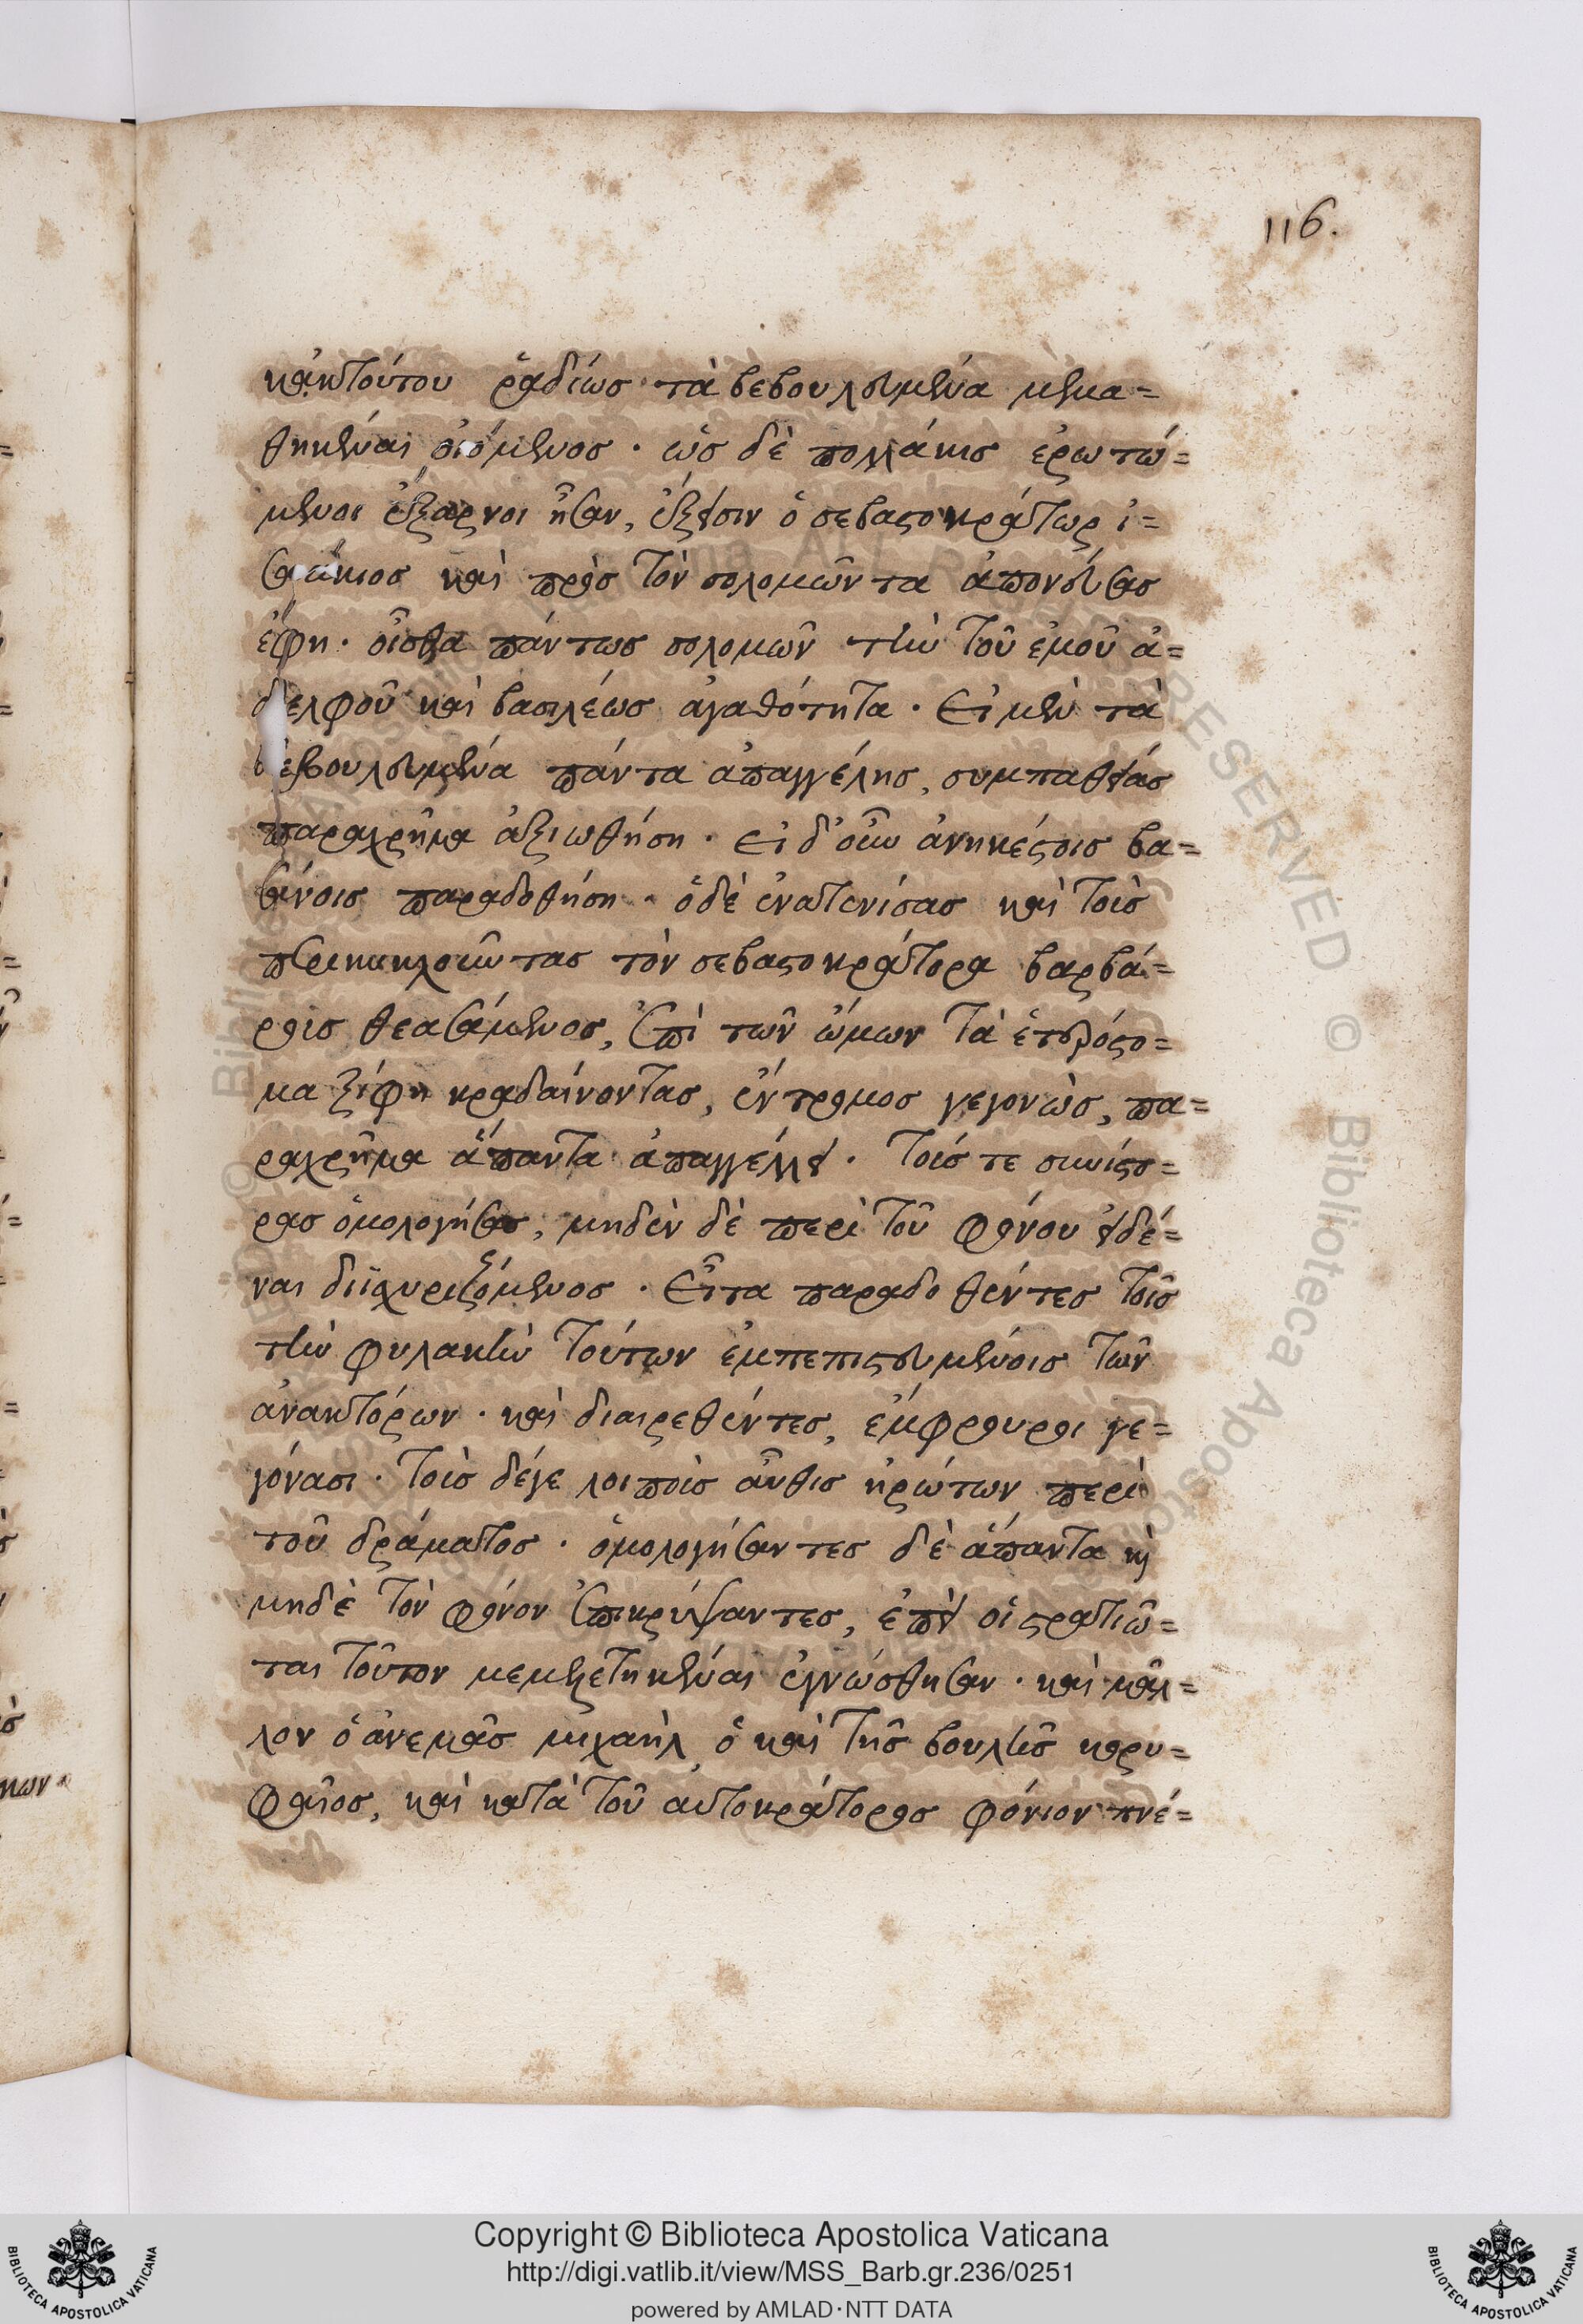 116.
κἀκ τούτου ῥαδίως τὰ βεβουλευμένα μεμα=
θηκέναι οἰόμενος · ὡς δὲ πολλάκις ἐρωτώ=
μενοι ἔξαρνοι ἦσαν, ἔξεισιν ὁ σεβαστοκράτωρ ἰ=
σαάκιος καὶ πρὸς τὸν σολομῶντα ἀπονεύσας
ἔφη · οἶσθα πάντως σολομῶν τὴν τοῦ ἐμοῦ ἀ=
δελφοῦ καὶ βασιλέως ἀγαθότητα · Εἰ μὲν τὰ
βεβουλευμένα πάντα ἀπαγγέλης, συμπαθείας
παραχρῆμα ἀξιωθήση · εἰ δ' οὖν ἀνηκέστοις βα=
σάνοις παραδοθήση · ὁ δὲ ἐνατενίσας καὶ τοὺς
περικυκλοῦντας τὸν σεβαστοκράτορα βαρβά=
ρους θεασάμενος, ἐπὶ τῶν ὤμων τὰ ἑτερόστο=
μα ξίφη κραδαίνοντας, ἔντρομος γεγονὼς, πα=
ραχρῆμα ἅπαντα ἀπαγγέλλει · τούς τε συνίστο=
ρας ὁμολογήσας, μηδὲν δὲ περὶ τοῦ φόνου εἰδέ=
ναι διϊσχυριζόμενος · Εἶτα παραδοθέντες τοῖς
τὴν φυλακὴν τούτων ἐμπεπιστευμένοις τῶν
ἀνακτόρων · καὶ διαιρεθέντες, ἔμφρουροι γε=
γόνασι · τοὺς δέ γε λοιποὺς αὖθις ἠρώτων περὶ
τοῦ δράματος · ὁμολογήσαντες δὲ ἅπαντα κὶ
μηδὲ τὸν φόνον ἐπικρύψαντες, ἐπεὶ οἱ στρατιῶ=
ται τοῦτον μεμελετηκέναι ἐγνώσθησαν · καὶ μᾶλ=
λον ὁ ἀνεμᾶς μιχαὴλ, ὁ καὶ τῆς βουλῆς κορυ=
φαῖος, καὶ κατὰ τοῦ αὐτοκράτορος φόνιον πνέ=
Copyright © Biblioteca Apostolica Vaticana
http://digi.vatlib.it/view/MSS_Barb.gr.236/0251
powered by AMLAD·NTT DATA